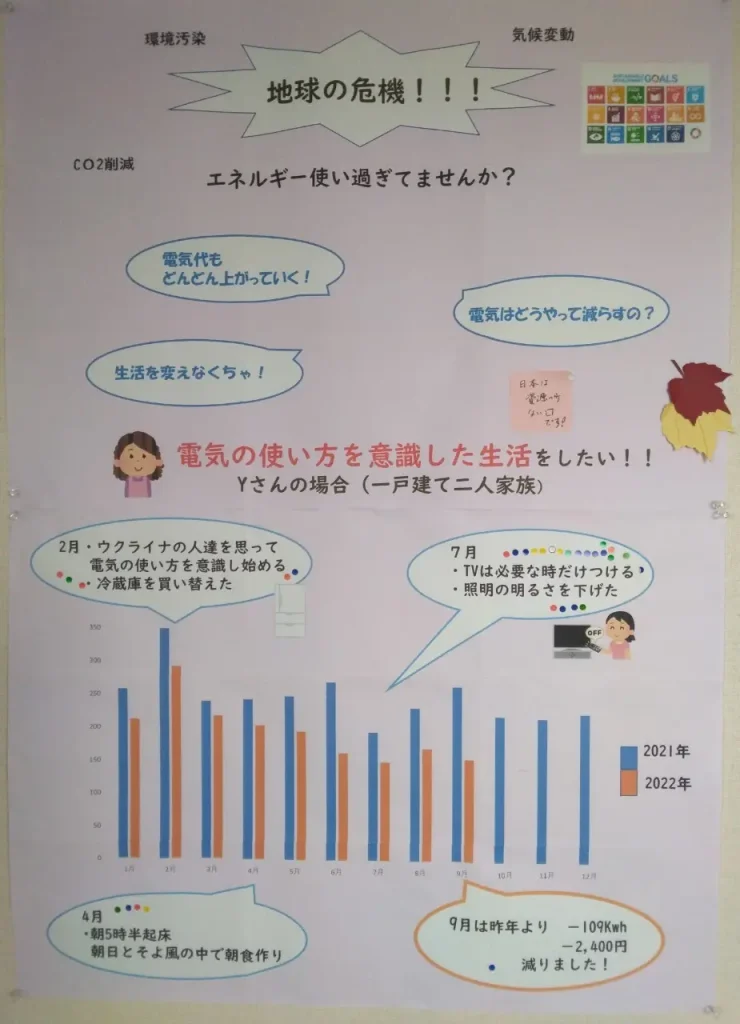 環境汚染
気候変動
地球の危機！！！
GOALS
CO2削減
エネルギー使い過ぎてませんか？
電気代も
どんどん上がっていく！
電気はどうやって減らすの？
生活を変えなくちゃ！
日本は
資源の
ない国
です!
電気の使い方を意識した生活をしたい！！
Yさんの場合（一戸建て二人家族）
2月・ウクライナの人達を思って
電気の使い方を意識し始める
・冷蔵庫を買い替えた
7月
・TVは必要な時だけつける
・照明の明るさを下げた
OFF
350
300
250
200
150
100
50
0
1月 2月 3月 4月 5月 6月 7月 8月 9月 10月 11月 12月
2021年
2022年
4月
・朝5時半起床
朝日とそよ風の中で朝食作り
9月は昨年より －109Kwh
－2,400円
減りました！